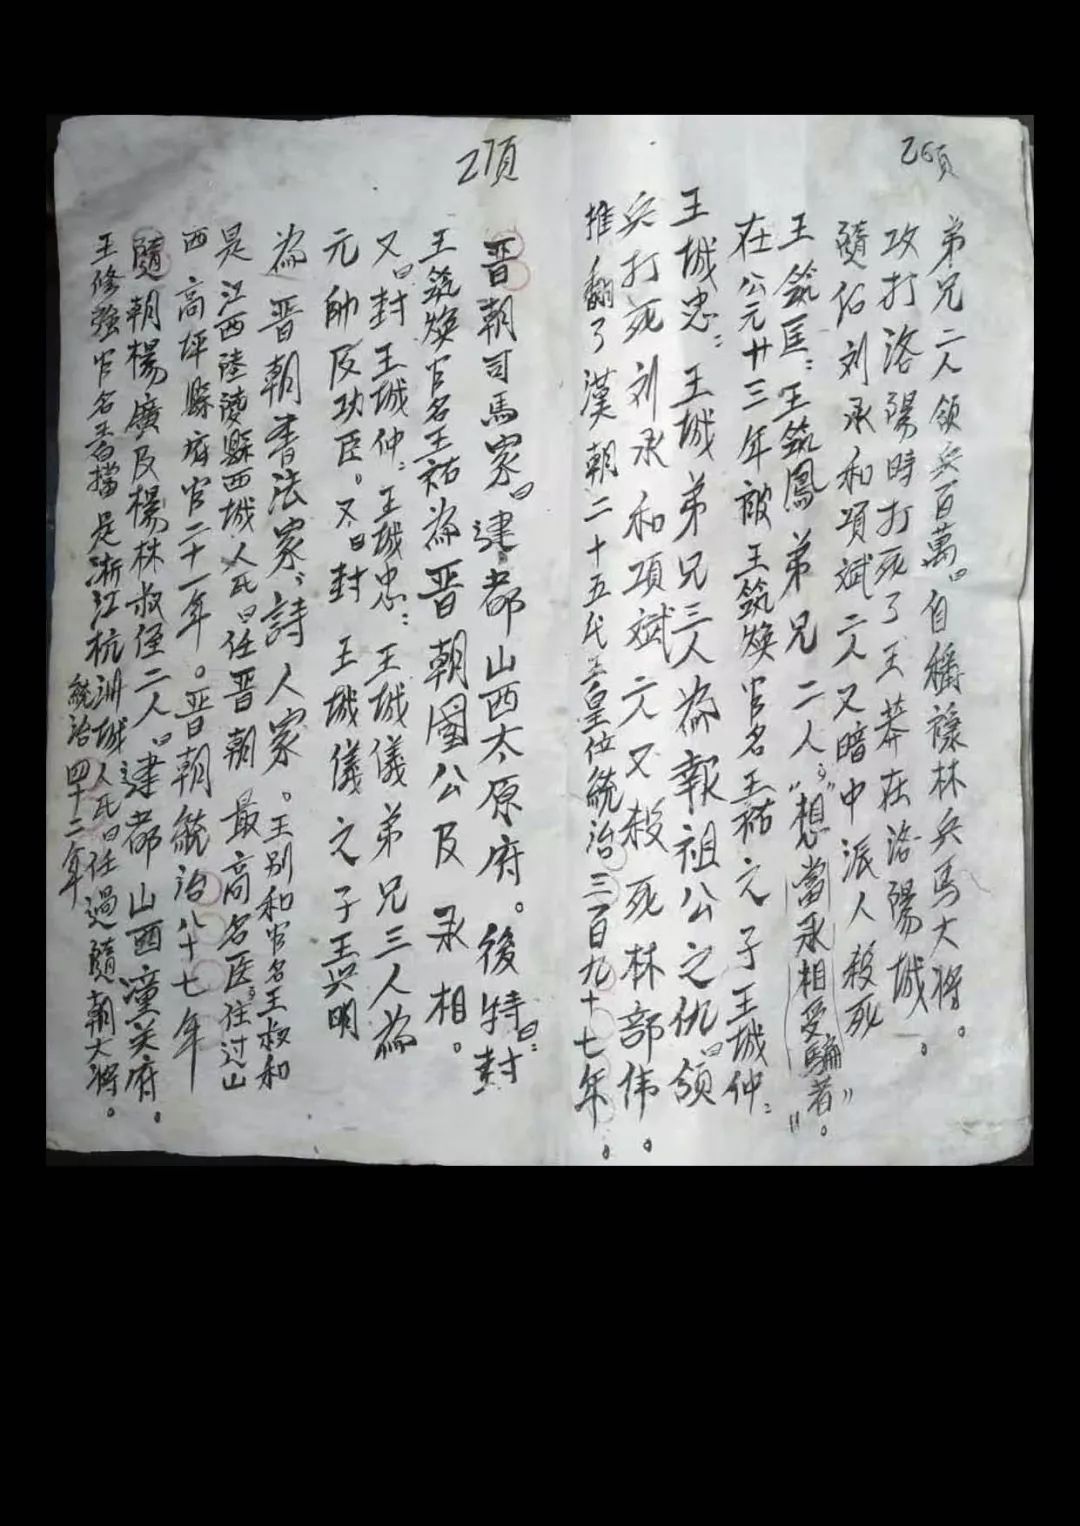 26頁
弟兄二人领兵百萬。自稱祿林兵馬大將。
攻打洛陽時打死了王莽在洛陽城。
隨后刘承和項斌二人又暗中派人殺死
王筑匡：王筑鳳弟兄二人“想當承相受騙者”。
在公元廿三年敵王筑焕官名王祐之子王城仲：
王城忠：王城弟兄三人為報祖公之仇。领
兵打死刘承和項斌六又殺死林部伟。
推翻了漢朝二十五代王皇位統治三百九十七年。
27頁
晋朝司馬家。建都山西太原府。後特：封
王筑焕官名王祐為晋朝國公及承相。
又。封王城仲：王城忠：王城儀弟兄三人為
元帅及功臣。又。封王城儀之子王兴明
為晋朝書法家：詩人家。王别和官名王叔和
是江西陸陵縣西城人氏。任晋朝最高名医。住过山
西高坪縣府官二十一年。晋朝統治八十七年
隨朝楊廣及楊林叔侄二人。建都山西潼关府。
王修强官名王擋是浙江杭洲城人氏。任過隨朝大將。
統治四十二年